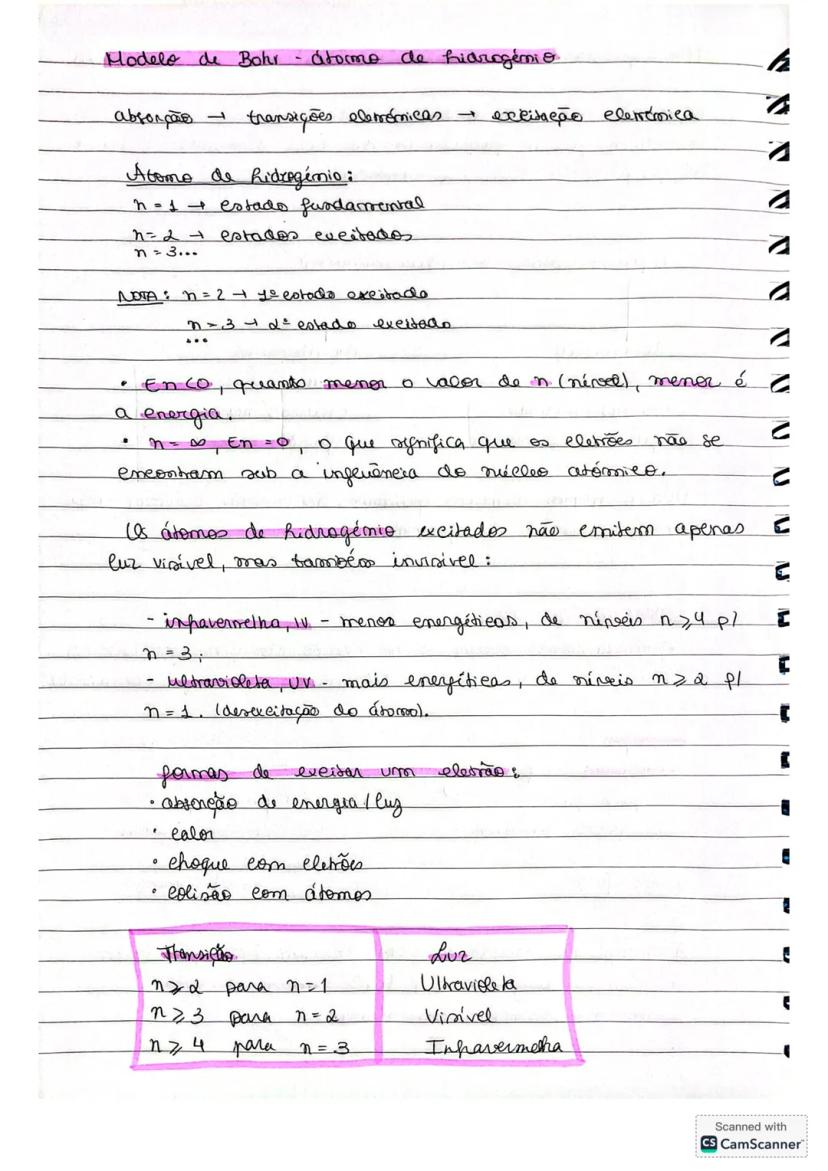 Modelo de Bohr - átomo de hidrogénio
absorção → transições eletrónicas → excitação eletrónica
Átomo de hidrogénio:
n = 1 → estado fundamental
n = 2 → estados excitados
n = 3...
NOTA: n = 2 → 1º estado excitado
n = 3 → 2º estado excitado
...
• En < 0, quanto menor o valor de n (nível), menor é
a energia.
• n = ∞, En = 0, o que significa que os eletrões não se
encontram sub a influência do núcleo atómico.
Os átomos de hidrogénio excitados não emitem apenas
luz visível, mas também invisível:
- infravermelha, IV - menos energéticas, de níveis n ≥ 4 p/
n = 3;
- ultravioleta, UV - mais energéticas, de níveis n ≥ 2 p/
n = 1. (desexcitação do átomo).
formas de excitar um eletrão:
• absorção de energia / luz
• calor
• choque com eletrões
• colisão com átomos
Transição Luz
n ≥ 2 para n = 1 Ultravioleta
n ≥ 3 para n = 2 Visível
n ≥ 4 para n = 3 Infravermelha
Scanned with
CS CamScanner